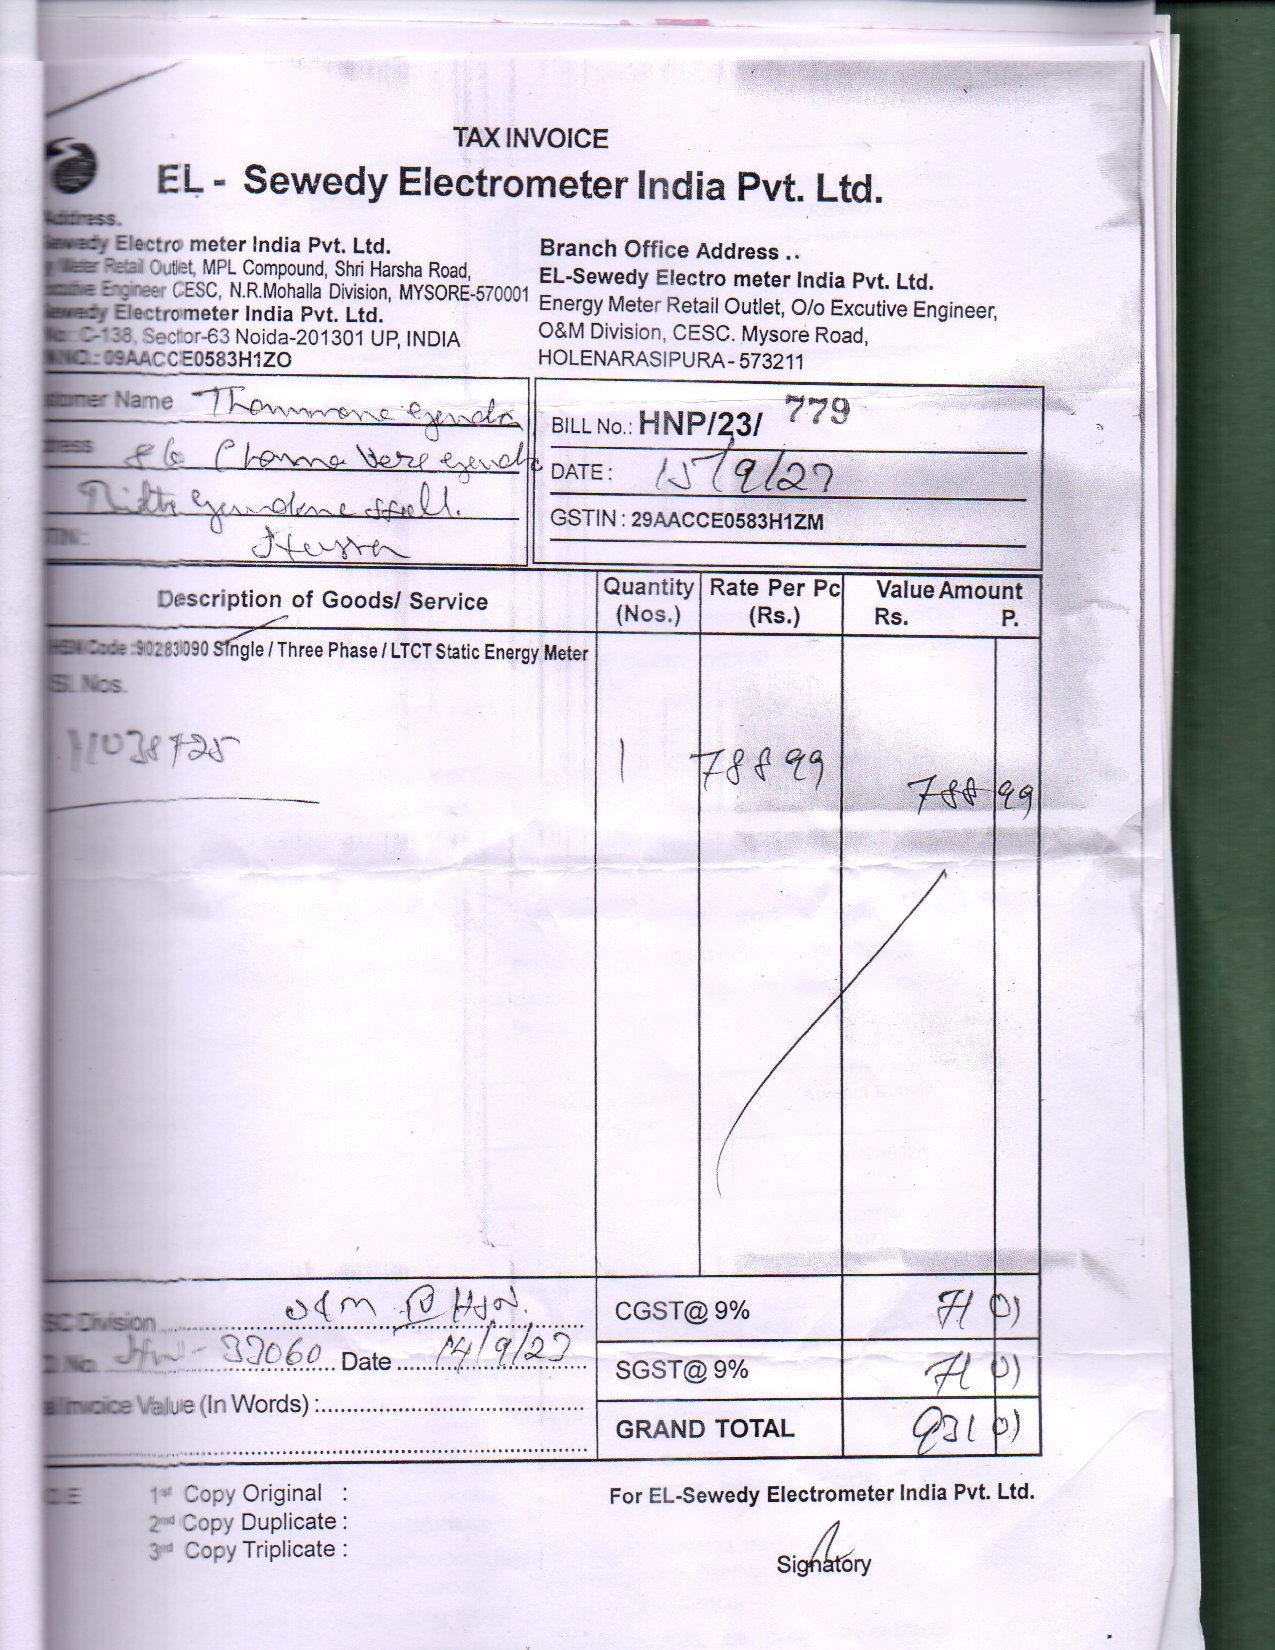 TAX INVOICE
EL - Sewedy Electrometer India Pvt. Ltd.
Address.
Sewedy Electro meter India Pvt. Ltd.
Meter Retail Outlet, MPL Compound, Shri Harsha Road,
Engineer CESC, N.R.Mohalla Division, MYSORE-570001
Sewedy Electrometer India Pvt. Ltd.
C-138, Sector-63 Noida-201301 UP, INDIA
09AACCE0583H1ZO
Branch Office Address ..
EL-Sewedy Electro meter India Pvt. Ltd.
Energy Meter Retail Outlet, O/o Excutive Engineer,
O&M Division, CESC. Mysore Road,
HOLENARASIPURA - 573211
Customer Name
BILL No.: HNP/23/ 779
DATE : 15/9/23
GSTIN : 29AACCE0583H1ZM
Description of Goods/ Service
Quantity (Nos.)
Rate Per Pc (Rs.)
Value Amount Rs. P.
HSN Code :90283090 Single / Three Phase / LTCT Static Energy Meter
Sl. Nos.
1 788 99 788 99
Division O&M HSN.
CGST@ 9% 71 01
33060 Date 14/9/23
SGST@ 9% 71 01
Invoice Value (In Words) :
GRAND TOTAL 931 01
1st Copy Original :
2nd Copy Duplicate :
3rd Copy Triplicate :
For EL-Sewedy Electrometer India Pvt. Ltd.
Signatory